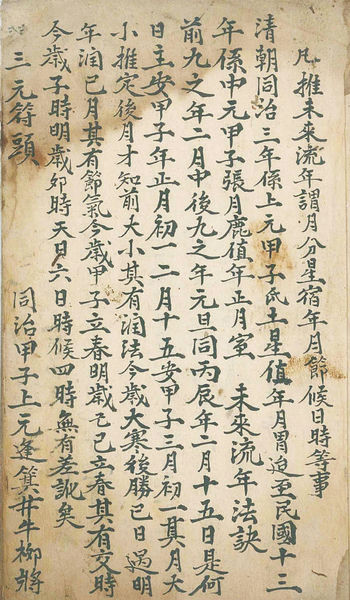 凡推未來流年謂月分星宿年月節候日時等事
清朝同治三年係上元甲子氐土星值年月胃迨至民國十三
年係中元甲子張月鹿值年正月室　未來流年法訣
前九之年二月中後九之年元旦同丙辰年二月十五日是何
日主安甲子年正月初一二月十五安甲子三月初一其月大
小推定後月才知前大小其有潤法今歲大寒後勝巳日遇明
年潤巳月其有節氣今歲甲子立春明歲乙巳立春其有交時
今歲子時明歲夘時天日六日時候四時無有差訛矣
三元符頭　同治甲子上元逢箕井牛柳將